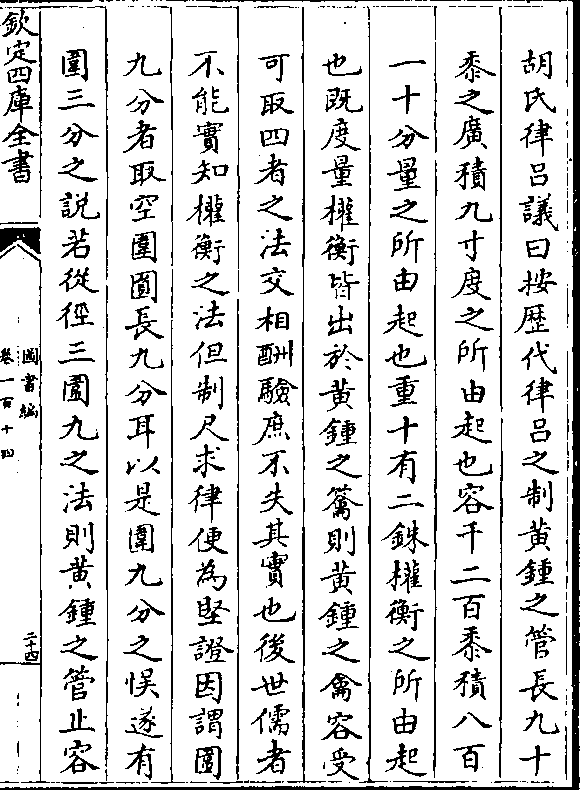 胡氏律呂議曰按歴代律呂之制黄鍾之管長九十
黍之廣積九寸度之所由起也容千二百黍積八百
一十分量之所由起也重十有二銖權衡之所由起
也既度量權衡皆出於黄鍾之籥則黄鍾之龠容受
可取四者之法交相酬驗庶不失其實也後世儒者
不能實知權衡之法但制尺求律便為堅證因謂圍
九分者取空圍圓長九分耳以是圍九分之悮遂有
圍三分之説若從徑三圍九之法則黄鍾之管止容
欽定四庫全書
圖書編
卷一百十四
二十四